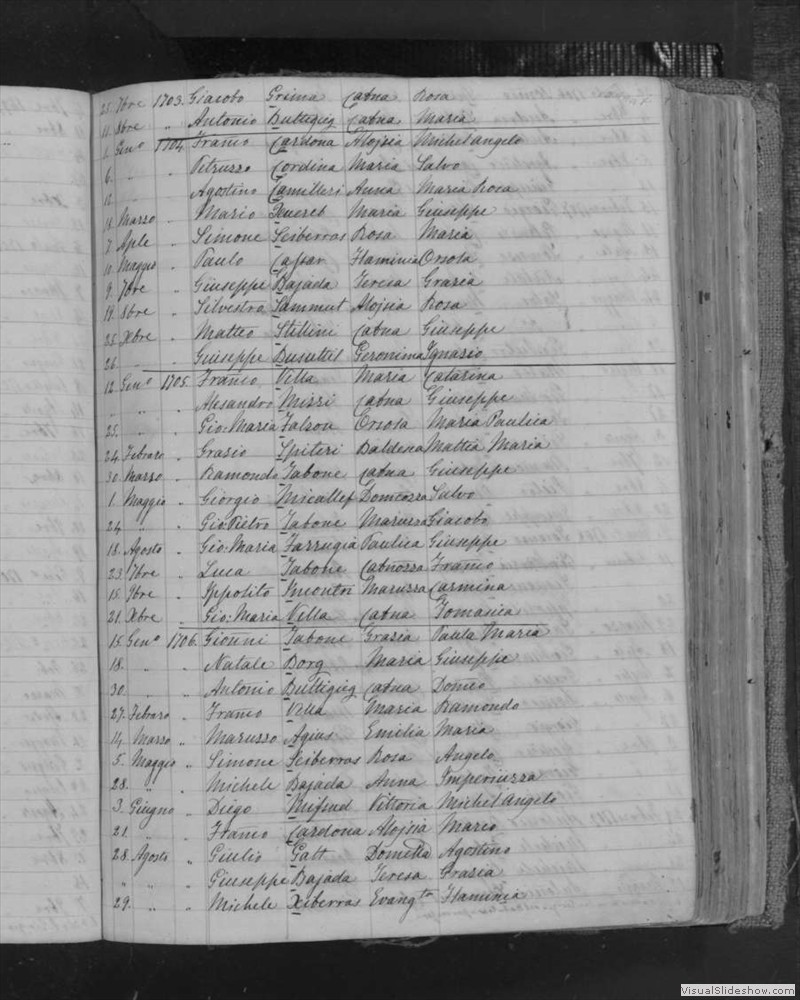 25. 7bre 1703. Giacobo Grima Catna Rosa
11. 8bre " Antonio Buttigieg Catna Maria
1. Geno 1704. Franco Cardona Alojsia Michel angelo
6. " " Petruzzo Cordina Maria Salvo
12. Agostino Camilleri Anna Maria Rosa
18. Marzo " Mario Xuereb Maria Giuseppe
7. Aple " Simone Sciberras Rosa Maria
10. Maggio " Paulo Caffar Flaminia Orsola
9. 7bre " Giuseppe Bajada Teresa Grazia
19. 8bre " Silvestro Sammut Alojsia Rosa
25. Xbre " Matteo Stellini Catna Giuseppe
26. " " Giuseppe Busuttil Geronima Ignazio
12. Geno 1705. Franco Vella Maria Catarina
" " " Alesandro Mizzi Catna Giuseppe
25. " " Gio: Maria Falzon Orsola Maria Paulica
24. Febraro " Grazio Spiteri Baldesa Mattia Maria
30. Marzo " Ramondo Tabone Catna Giuseppe
1. Maggio " Giorgio Micallef Domcozza Salvo
24. " " Gio: Pietro Tabone Maruzza Giacobo
18. Agosto " Gio: Maria Farrugia Paulica Giuseppe
23. 7bre " Luca Tabone Catnozza Franco
15. 9bre " Ippolito Inconti Maruzza Carmina
21. Xbre " Gio: Maria Vella Catna Tomasica
15. Geno 1706. Gionni Tabone Grazia Paula Maria
18. " " Natale Borg Maria Giuseppe
30. " " Antonio Buttigieg Catna Domco
27. Febraro " Franco Vella Maria Ramondo
14. Marzo " Maruzzo Agius Emilia Maria
5. Maggio " Simone Sciberras Rosa Angelo
28. " " Michele Bajada Anna Imperiuzza
3. Giugno " Diego Mifsud Vittoria Michel Angelo
21. " " Franco Cardona Alojsia Marco
28. Agosto " Giulio Gatt Dometta Agostino
" " " Giuseppe Bajada Teresa Grazia
29. " " Michele Xiberras Evangta Flaminia
VisualSlideshow.com